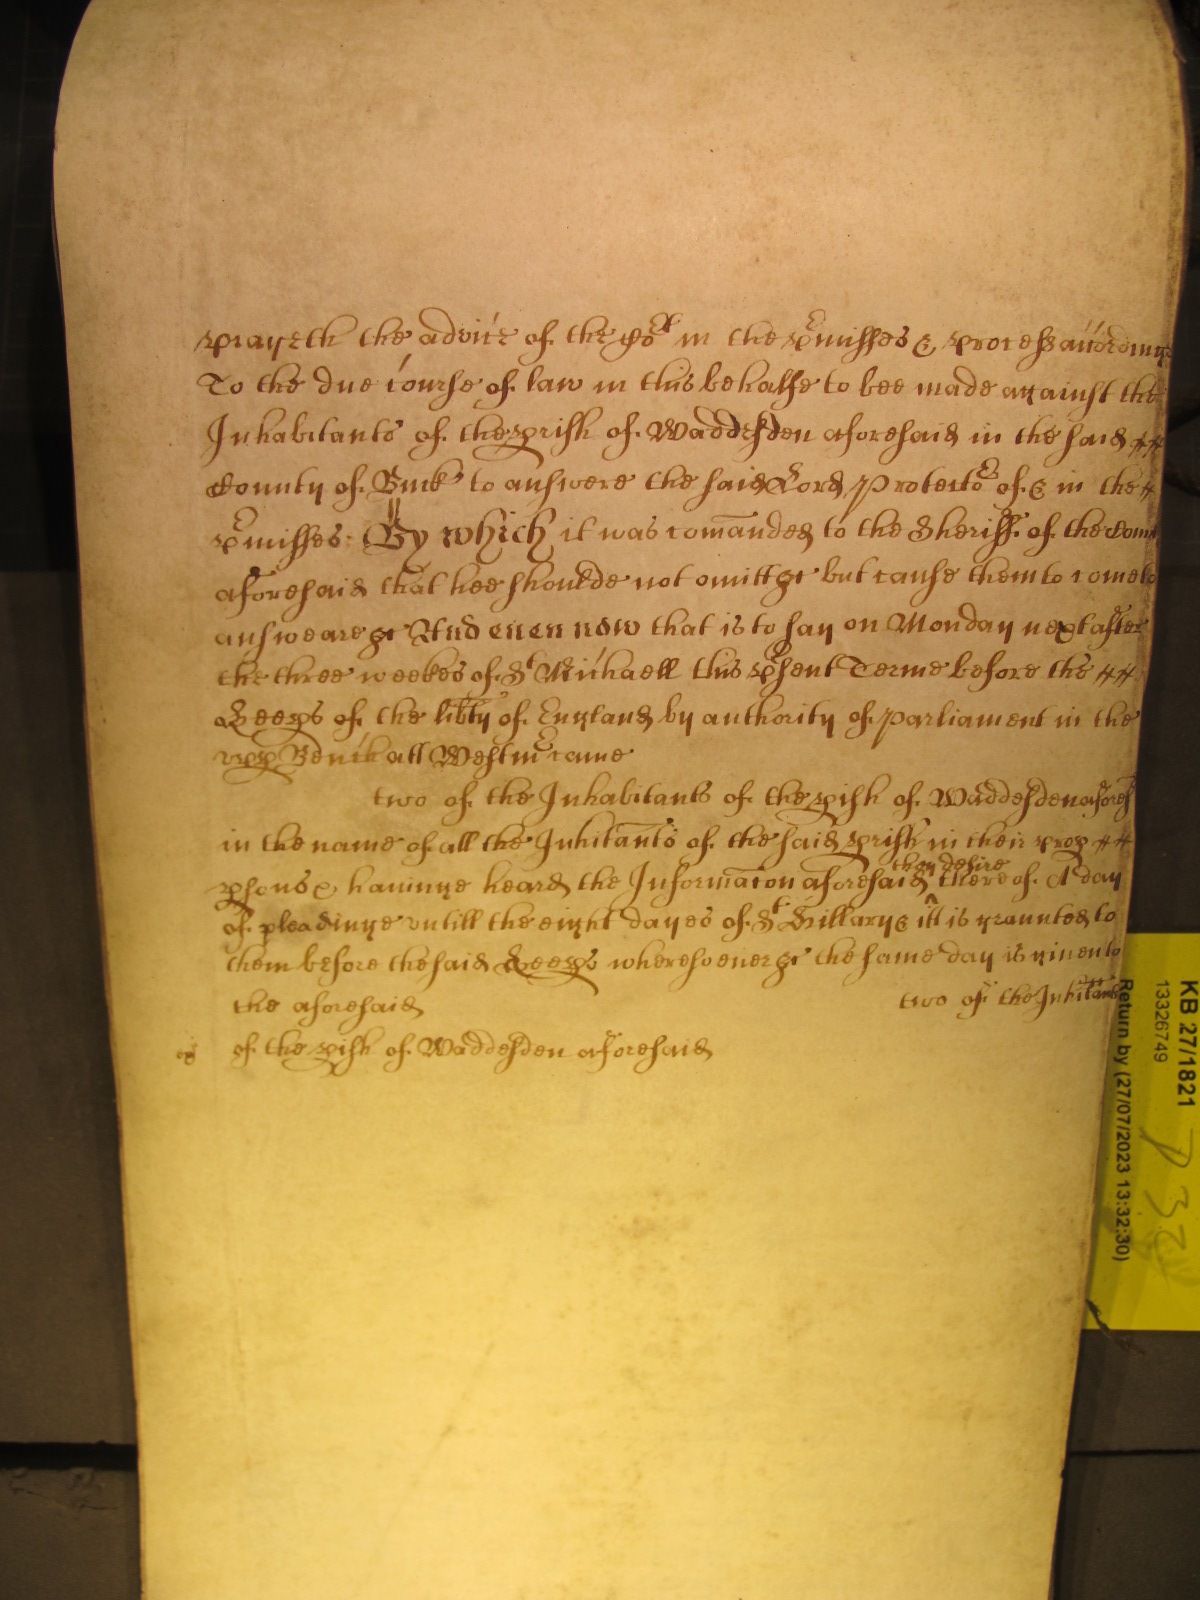 prayeth the advice of the Cort in the prmisses & process accordinge
To the due course of law in this behalfe to bee made against the
Inhabitants of the prish of Waddesden aforesaid in the said
County of Buck' to answere the said Lord Protector of & in the
prmisses. By which it was comanded to the Sheriff of the Com
aforesaid that hee shoulde not omitt &c but cause them to come to
answeare &c And even now that is to say on Monday next after
the three weekes of St Michaell this psent Terme before the
Keeps of the libty of England by authority of parliament in the
upp Bench att Westmr came
two of the Inhabitants of the pish of Waddesden afores
in the name of all the Inhitants of the said prish in their prop
psons & havinge heard the Informacon aforesaid they desire thereof A day
of pleadinge untill the eight dayes of St Hillary & itt is graunted to
them before the said Keeps wheresoever &c the same day is given to
the aforesaid two of the Inhitants
of the pish of Waddesden aforesaid
KB 27/1821
13326749
Return by (27/07/2023 13:32:30)